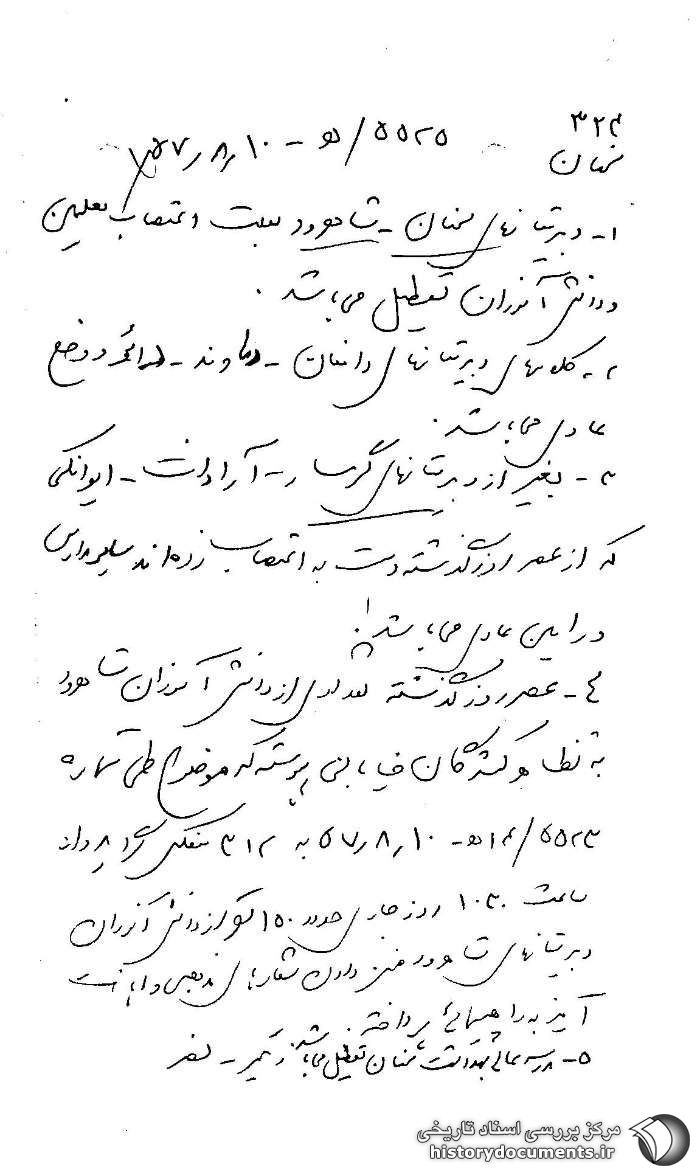 ۳۲۴
سمنان
۵۵۲۵/ﻫ - ۵۷٫۸٫۱۰
۱- دبیرستانهای سمنان - شاهرود بعلت اعتصاب معلمین
و دانش آموزان تعطیل می باشد.
۲- کلاسهای دبیرستانهای دامغان - دماوند - دائر و وضع
عادی می باشد.
۳- بغیر از دبیرستانهای گرمسار - آرادان - ایوانکی
که از عصر روز گذشته دست به اعتصاب زده اند سایر مدارس
در این عادی می باشد.
۴- عصر روز گذشته تعدادی از دانش آموزان شاهرود
به تظاهرکنندگان خیابانی پیوسته که موضوع طی شماره
۵۵۲۳/۱۴ﻫ - ۵۷٫۸٫۱۰ به ۳۱۲ منعکس
ساعت ۱۰۳۰ روز جاری حدود ۱۵۰ نفر از دانش آموزان
دبیرستانهای شاهرود ضمن دادن شعارهای مذهبی و اهانت
آمیز به راهپیمائی پرداخته.
۵- مدرسه عالی بهداشت سمنان تعطیل می باشد.
مرکز بررسی اسناد تاریخی
historydocuments.ir